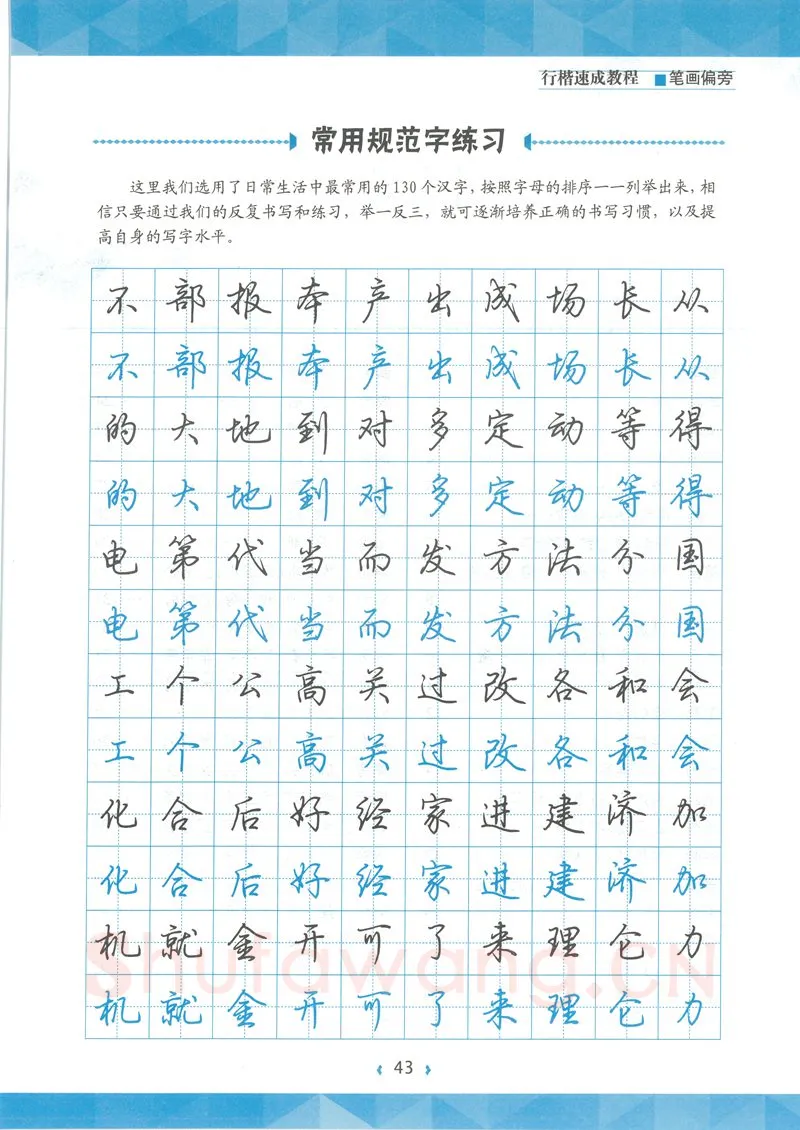 行楷速成教程 ■笔画偏旁
常用规范字练习
这里我们选用了日常生活中最常用的130个汉字，按照字母的排序一一列举出来，相
信只要通过我们的反复书写和练习，举一反三，就可逐渐培养正确的书写习惯，以及提
高自身的写字水平。
不部报本产出成场长从
不部报本产出成场长从
的大地到对多定动等得
的大地到对多定动等得
电第代当而发方法分国
电第代当而发方法分国
工个公高关过改各和会
工个公高关过改各和会
化合后好经家进建济加
化合后好经家进建济加
机就金开可了来理仑力
机就金开可了来理仑力
Shufawang.CN
43